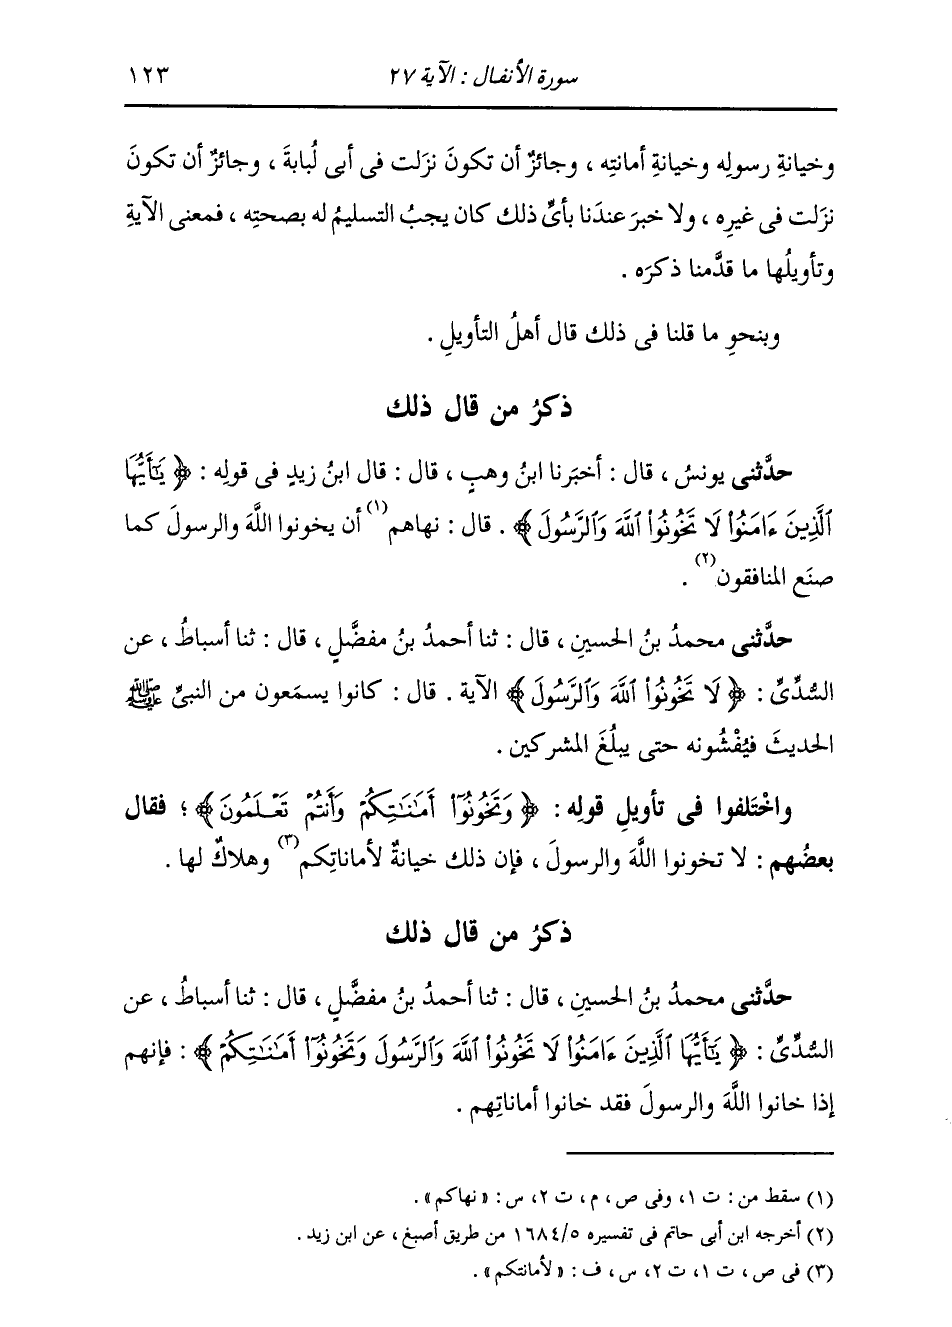 سورة الأنفال : الآية ٢٧ ١٢٣
وخيانةِ رسولِه وخيانةِ أمانتِه ، وجائزٌ أن تكونَ نزَلت فى أبى لُبابةَ ، وجائزٌ أن تكونَ
نزَلت فى غيرِه ، ولا خبرَ عندَنا بأىِّ ذلك كان يجبُ التسليمُ له بصحتِه ، فمعنى الآيةِ
وتأويلُها ما قدَّمنا ذكرَه .
وبنحوِ ما قلنا فى ذلك قال أهلُ التأويلِ .
ذكرُ من قال ذلك
حدَّثنى يونسُ ، قال : أخبَرنا ابنُ وهبٍ ، قال : قال ابنُ زيدٍ فى قولِه : ﴿ يَٰٓأَيُّهَا
ٱلَّذِينَ ءَامَنُوا۟ لَا تَخُونُوا۟ ٱللَّهَ وَٱلرَّسُولَ ﴾ . قال : نهاهم(١) أن يخونوا اللَّهَ والرسولَ كما
صنَع المنافقون(٢) .
حدَّثنى محمدُ بنُ الحسينِ ، قال : ثنا أحمدُ بنُ مفضَّلٍ ، قال : ثنا أسباطُ ، عن
السُّدِّىِّ : ﴿ لَا تَخُونُوا۟ ٱللَّهَ وَٱلرَّسُولَ ﴾ الآية . قال : كانوا يسمَعون من النبىِّ ﷺ
الحديثَ فيُفْشُونه حتى يبلُغَ المشركين .
واخْتَلفوا فى تأويلِ قولِه : ﴿ وَتَخُونُوٓا۟ أَمَٰنَٰتِكُمْ وَأَنتُمْ تَعْلَمُونَ ﴾ ؛ فقال
بعضُهم : لا تخونوا اللَّهَ والرسولَ ، فإن ذلك خيانةٌ لأماناتِكم(٣) وهلاكٌ لها .
ذكرُ من قال ذلك
حدَّثنى محمدُ بنُ الحسينِ ، قال : ثنا أحمدُ بنُ مفضَّلٍ ، قال : ثنا أسباطُ ، عن
السُّدِّىِّ : ﴿ يَٰٓأَيُّهَا ٱلَّذِينَ ءَامَنُوا۟ لَا تَخُونُوا۟ ٱللَّهَ وَٱلرَّسُولَ وَتَخُونُوٓا۟ أَمَٰنَٰتِكُمْ ﴾ : فإنهم
إذا خانوا اللَّهَ والرسولَ فقد خانوا أماناتِهم .
(١) سقط من : ت ١، وفى ص ، م ، ت ٢، س : « نهاكم » .
(٢) أخرجه ابن أبى حاتم فى تفسيره ٥/ ١٦٨٤ من طريق أصبغ ، عن ابن زيد .
(٣) فى ص ، ت ١، ت ٢، س ، ف : « لأمانتكم » .